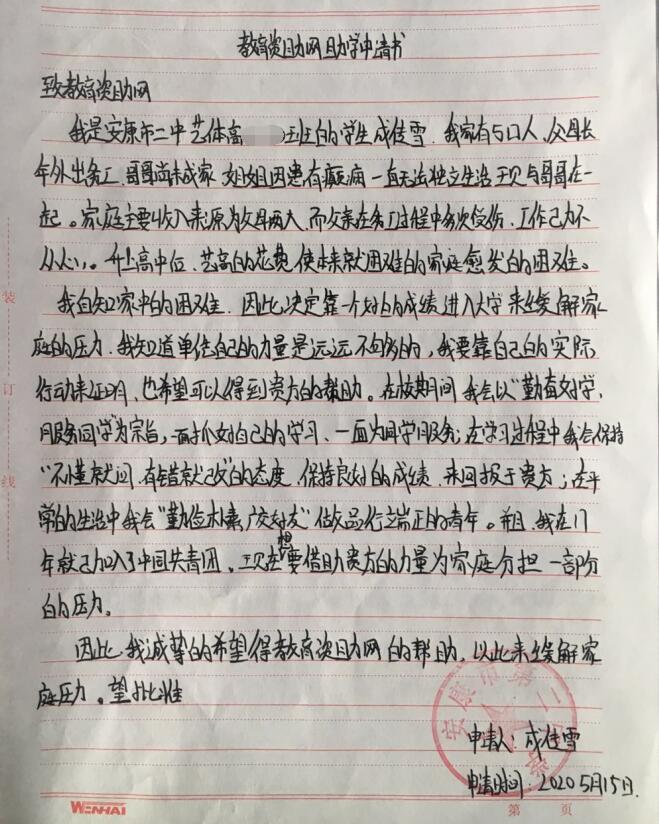 教育资助网助学申请书
致教育资助网
我是安康市二中艺体高 班的学生成佳雪。我家有5口人,父母长
年外出务工,哥哥尚未成家,姐姐因患有癫痫一直无法独立生活现与哥哥在一
起。家庭主要收入来源为父母两人,而父亲在务工过程中多次受伤,工作已力不
从心。升上高中位、艺高的花费使本来就困难的家庭愈发的困难。
我自知家中的困难,因此决定靠一个好的成绩进入大学来缓解家
庭的压力,我知道单住自己的力量是远远不够的,我要靠自己的实际
行动来证明,也希望可以得到贵方的帮助。在校期间我会以“勤奋好学,
服务同学”为宗旨,一面抓好自己的学习、一面为同学服务;在学习过程中我会保持
“不懂就问,有错就改”的态度,保持良好的成绩,来回报于贵方;在平
常的生活中我会“勤俭朴素,广交好友”做好品行端正的青年。并且,我在17
年就已加入了中国共青团,现在想要借助贵方的力量为家庭分担一部分
的压力。
因此,我诚挚的希望得教育资助网的帮助,以此来缓解家
庭压力。望批准
申请人:成佳雪
申请时间:2020 5月15日.
装
订
线
安康市第二
WENHAI
第 页